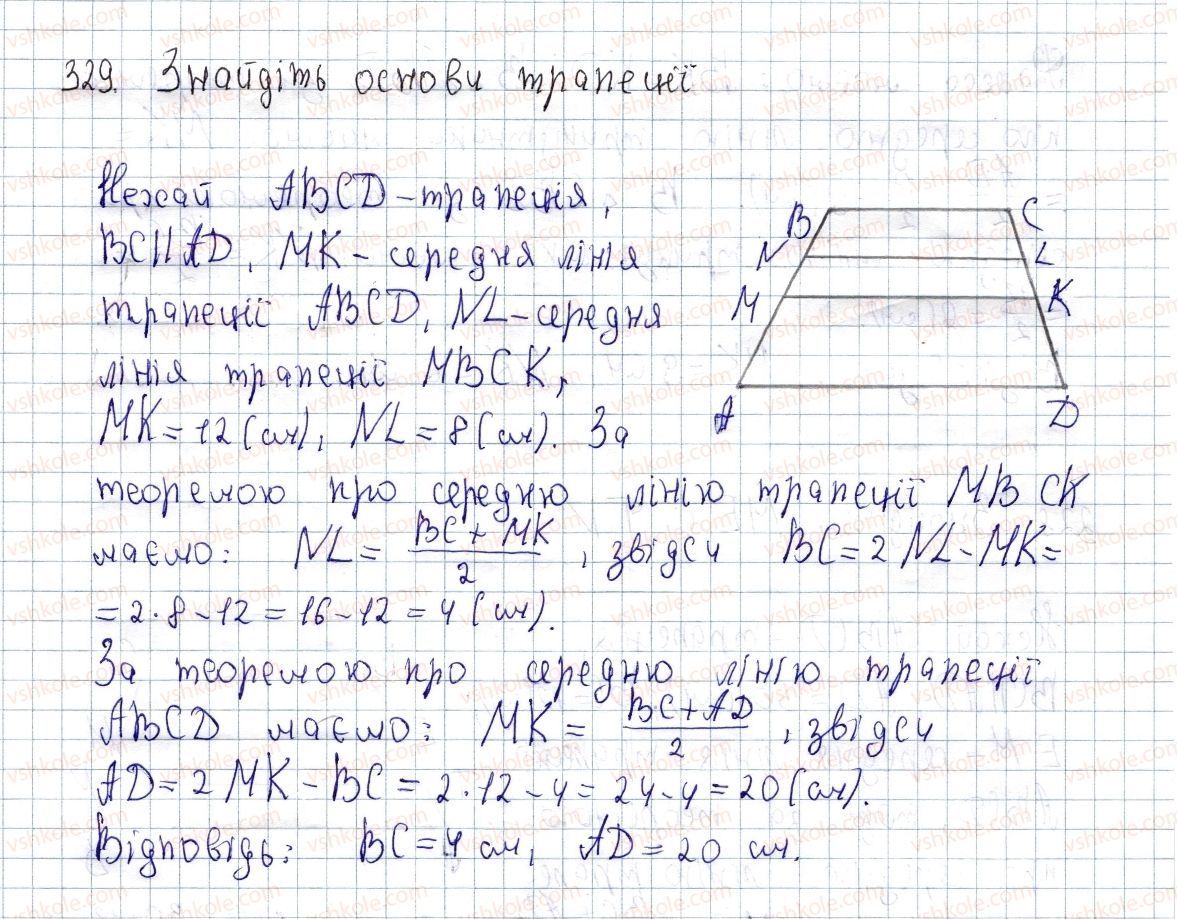 329. Знайдіть основи трапеції
Нехай ABCD – трапеція,
BC||AD, MK – середня лінія
трапеції ABCD, NL – середня
лінія трапеції MBCK,
MK = 12 (см), NL = 8 (см). За
теоремою про середню лінію трапеції MBCK
маємо: NL = (BC + MK)/2, звідси BC = 2 NL – MK =
= 2·8 – 12 = 16 – 12 = 4 (см).
За теоремою про середню лінію трапеції
ABCD маємо: MK = (BC + AD)/2, звідси
AD = 2 MK – BC = 2·12 – 4 = 24 – 4 = 20 (см).
Відповідь: BC = 4 см, AD = 20 см.
B C
N L
M K
A D
vshkole.com